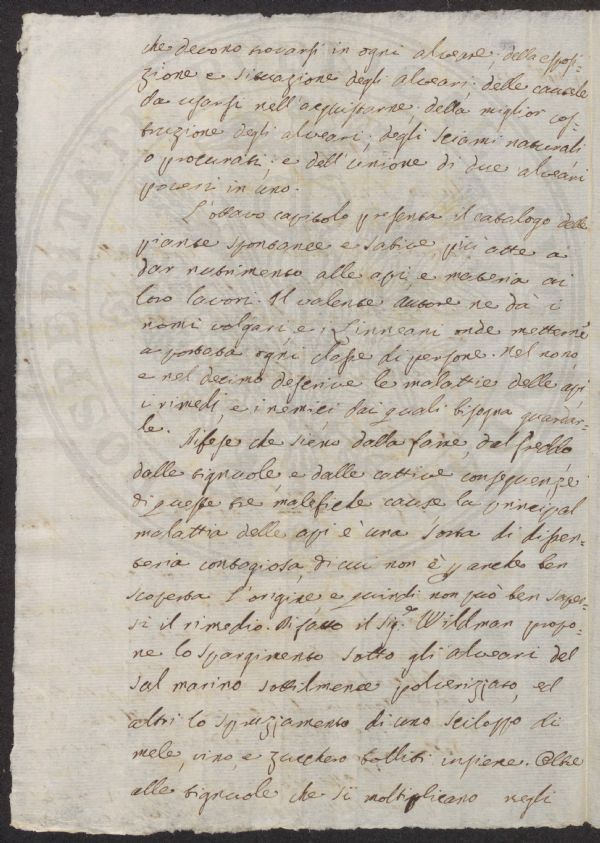 che devono trovarsi in ogni alveare; della esposi-
zione e situazione degli alveari; delle cautele
da usarsi nell'acquistarne; della miglior cos-
truzione degli alveari; degli sciami naturali
o procurati; e dell'unione di due alveari
poveri in uno.
L'ottavo capitolo presenta il catalogo delle
piante spontanee e sative, più atte a
dar nutrimento alle api, e materia ai
loro lavori. Il valente autore ne dà i
nomi volgari e Linneani onde metterne
a portata ogni classe di persone. Nel nono
e nel decimo descrive le malattie delle api
i rimedj, e i nemici dai quali bisogna guardar-
le.
Difese che sieno dalla fame, dal freddo
dalle tignuole, e dalle cattive conseguenze
di queste tre malefiche cause, la principal
malattia delle api è una sorta di dissen-
teria contagiosa, di cui non è p anche ben
scoperta l'origine e quindi non può ben saper-
si il rimedio. Difatto il Sig.r Wildman propo-
ne lo spargimento sotto gli alveari del
sal marino sottilmente polverizzato, ed
altri lo spruzzamento di uno sciloppo di
mele, vino, e zucchero bolliti insieme. Oltre
alle tignuole che si moltiplicano negli